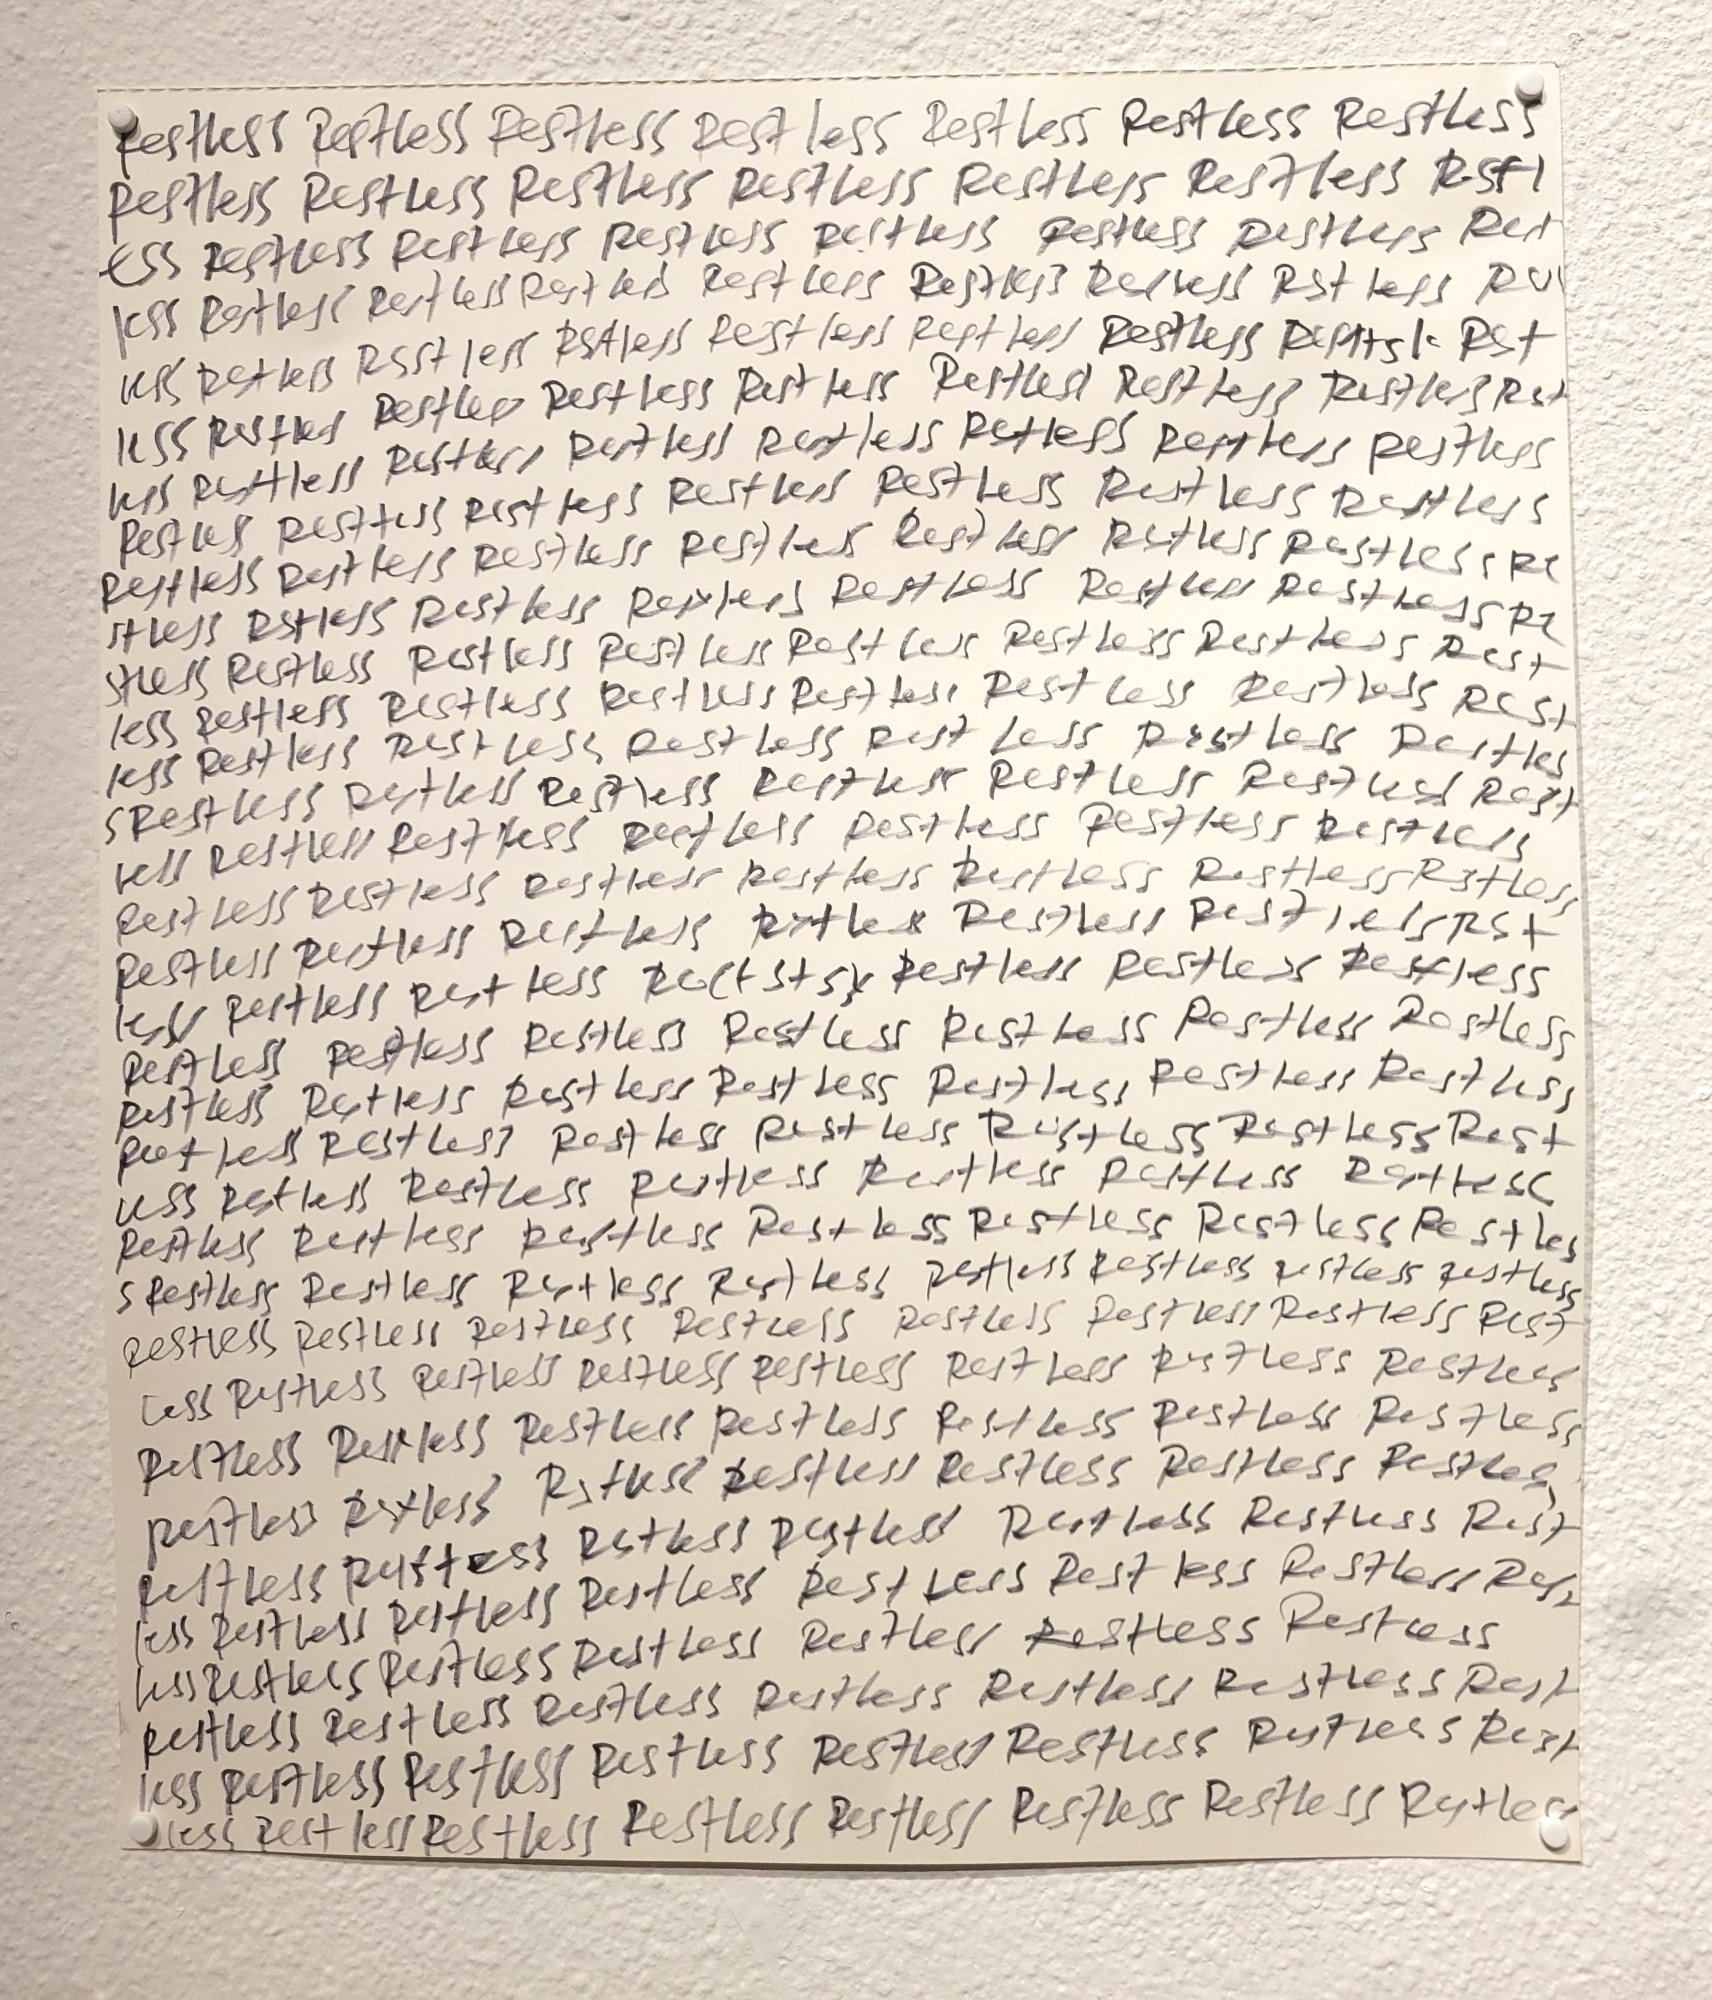 Restless Restless Restless Restless Restless Restless Restless
Restless Restless Restless Restless Restless Restless Rstl
ess Restless Restless Restless Restless Restless Restless Rest
less Restless Restless Restless Restless Restless Restless Rstless
less Restless Rsstless Rstless Restless Restless Restless Rst
less Restless Restless Restless Restless Restless Restless Restless Rst
less Restless Restless Restless Restless Restless Restless Restless
Restless Restless Restless Restless Restless Restless Restless
Restless Restless Restless Restless Restless Restless Restless Re
stless Rstless Restless Restless Restless Restless Restless Re
stless Restless Restless Restless Restless Restless Restless Rest
less Restless Restless Restless Restless Restless Restless Rest
less Restless Restless Restless Restless Restless Restles
s Restless Restless Restless Restless Restless Restless Rest
less Restless Restless Restless Restless Restless Restless
Restless Restless Restless Restless Restless Restless Rstless
Restless Restless Restless Restless Restless Restless Rst
less Restless Restless Restless Restless Restless
Restless Restless Restless Restless Restless Restless Restless
Restless Restless Restless Restless Restless Restless Restless
Restless Restless Restless Restless Restless Restless Rest
less Restless Restless Restless Restless Restless Restless
Restless Restless Restless Restless Restless Restless Restles
s Restless Restless Restless Restless Restless Restless Restless Restless
Restless Restless Restless Restless Restless Restless Restless Rest
less Restless Restless Restless Restless Restless Restless Restless
Restless Restless Restless Restless Restless Restless Restless
Restless Restless Restless Restless Restless Restless Restless
Restless Restless Restless Restless Restless Restless Rest
less Restless Restless Restless Restless Restless Restless Rest
less Restless Restless Restless Restless Restless Restless
Restless Restless Restless Restless Restless Restless Rest
less Restless Restless Restless Restless Restless Restless Rest
less Restless Restless Restless Restless Restless Restless Restless